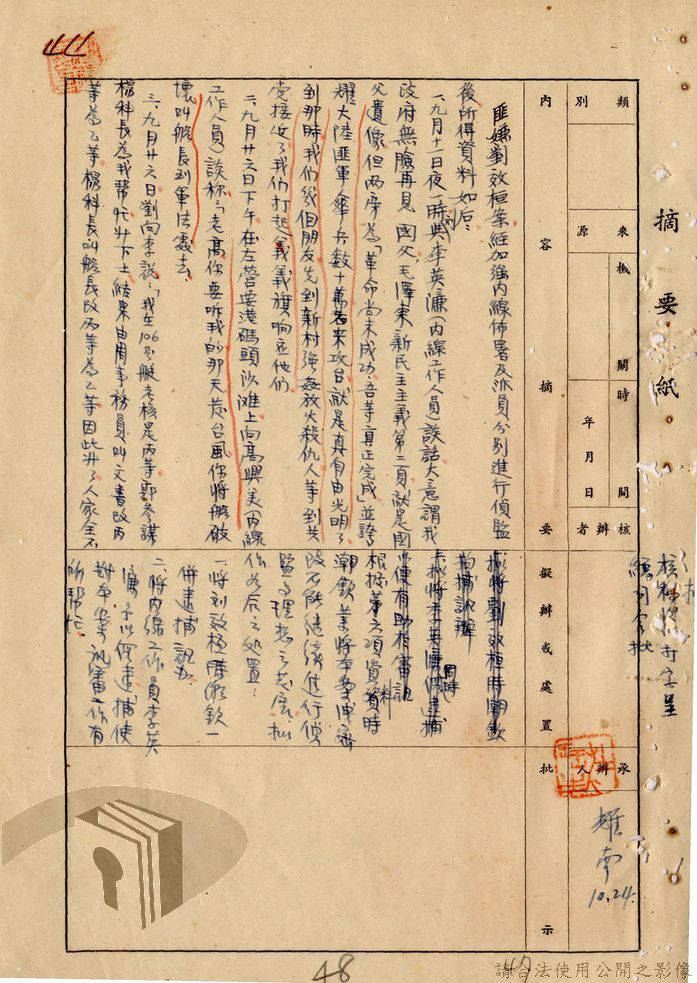 摘要紙
類別
來源
機關
時間
年月日
核辦者
承辦人
內容摘要
擬辦或處置
批示
匪嫌劉效桓案經加強內線佈署及派員分別進行偵監
後所得資料如后：
一、九月十一日夜一時與李英濂(內線工作人員)談話大意謂我
政府無臉再見 國父，毛澤東新民主主義第二頁就是國
父遺像但兩旁為「革命尚未成功，吾等真正完成」並誇
耀大陸匪軍 兵數十萬若來攻台就是真自由光明了
到那時我們幾個朋友先到新村強姦放火殺仇人等到共
黨接近了我們打起義旗响应他們
二、九月廿六日下午在左營 港碼頭沙灘上向高興美(內線
工作人員)談称：「老高你要听我的那天 台風你將船破
壞叫艇長到軍法處去
三、九月廿六日劉向李說：「我在106号艇考核是丙等 參謀
楊科長為我帮忙升下士結果由周事務員叫文書改丙
等為乙等楊科長叫艇長改丙等為乙等因此升了人家全不
擬將劉效桓時潮欽
拘捕訊辦
同時
擬將李英濂 逮捕
俾便有助於審訊
根據第六項資料時
潮欽 將本案洩密
故不能繼續進行偵
監 理想之發展，擬
作如后之處置：
一、將劉效桓時潮欽一
併逮捕訊办
二、將內線工作員李英
濂予以假逮捕使
對本案訊審工作有
所帮忙
打字呈
耀南
10.24.
48
請合法使用公開之影像